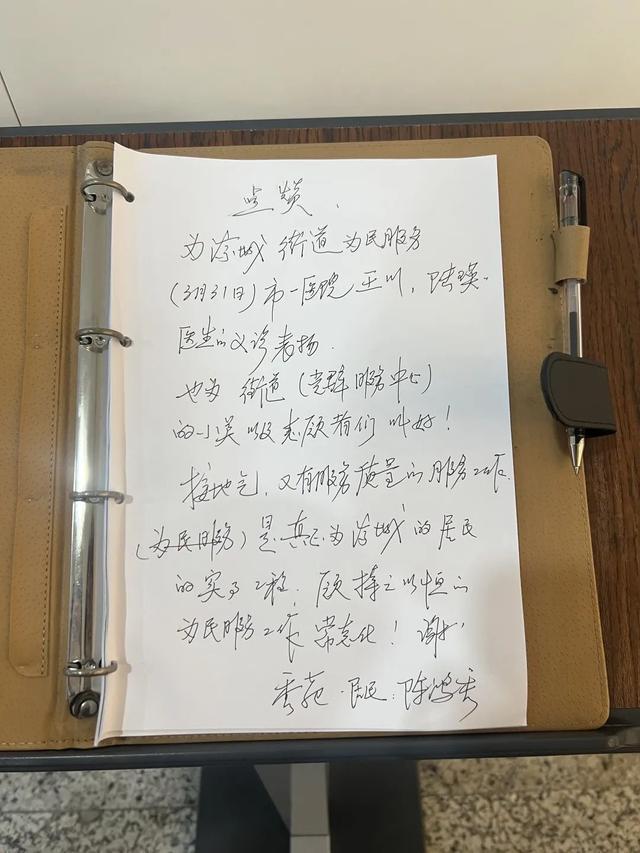 点赞、
为凉城 街道为民服务
(3月31日) 市一医院 王川,陆瑛
医生的义诊表扬.
也为 街道 (党群服务中心)
的小吴以及志愿者们 叫好!
接地气,又有服务质量的服务工作.
(为民服务) 是真正为凉城的居民
的实事工程. 愿持之以恒的
为民服务工作 常态化! 谢谢!
秀苑 居民: 陈鸿秀